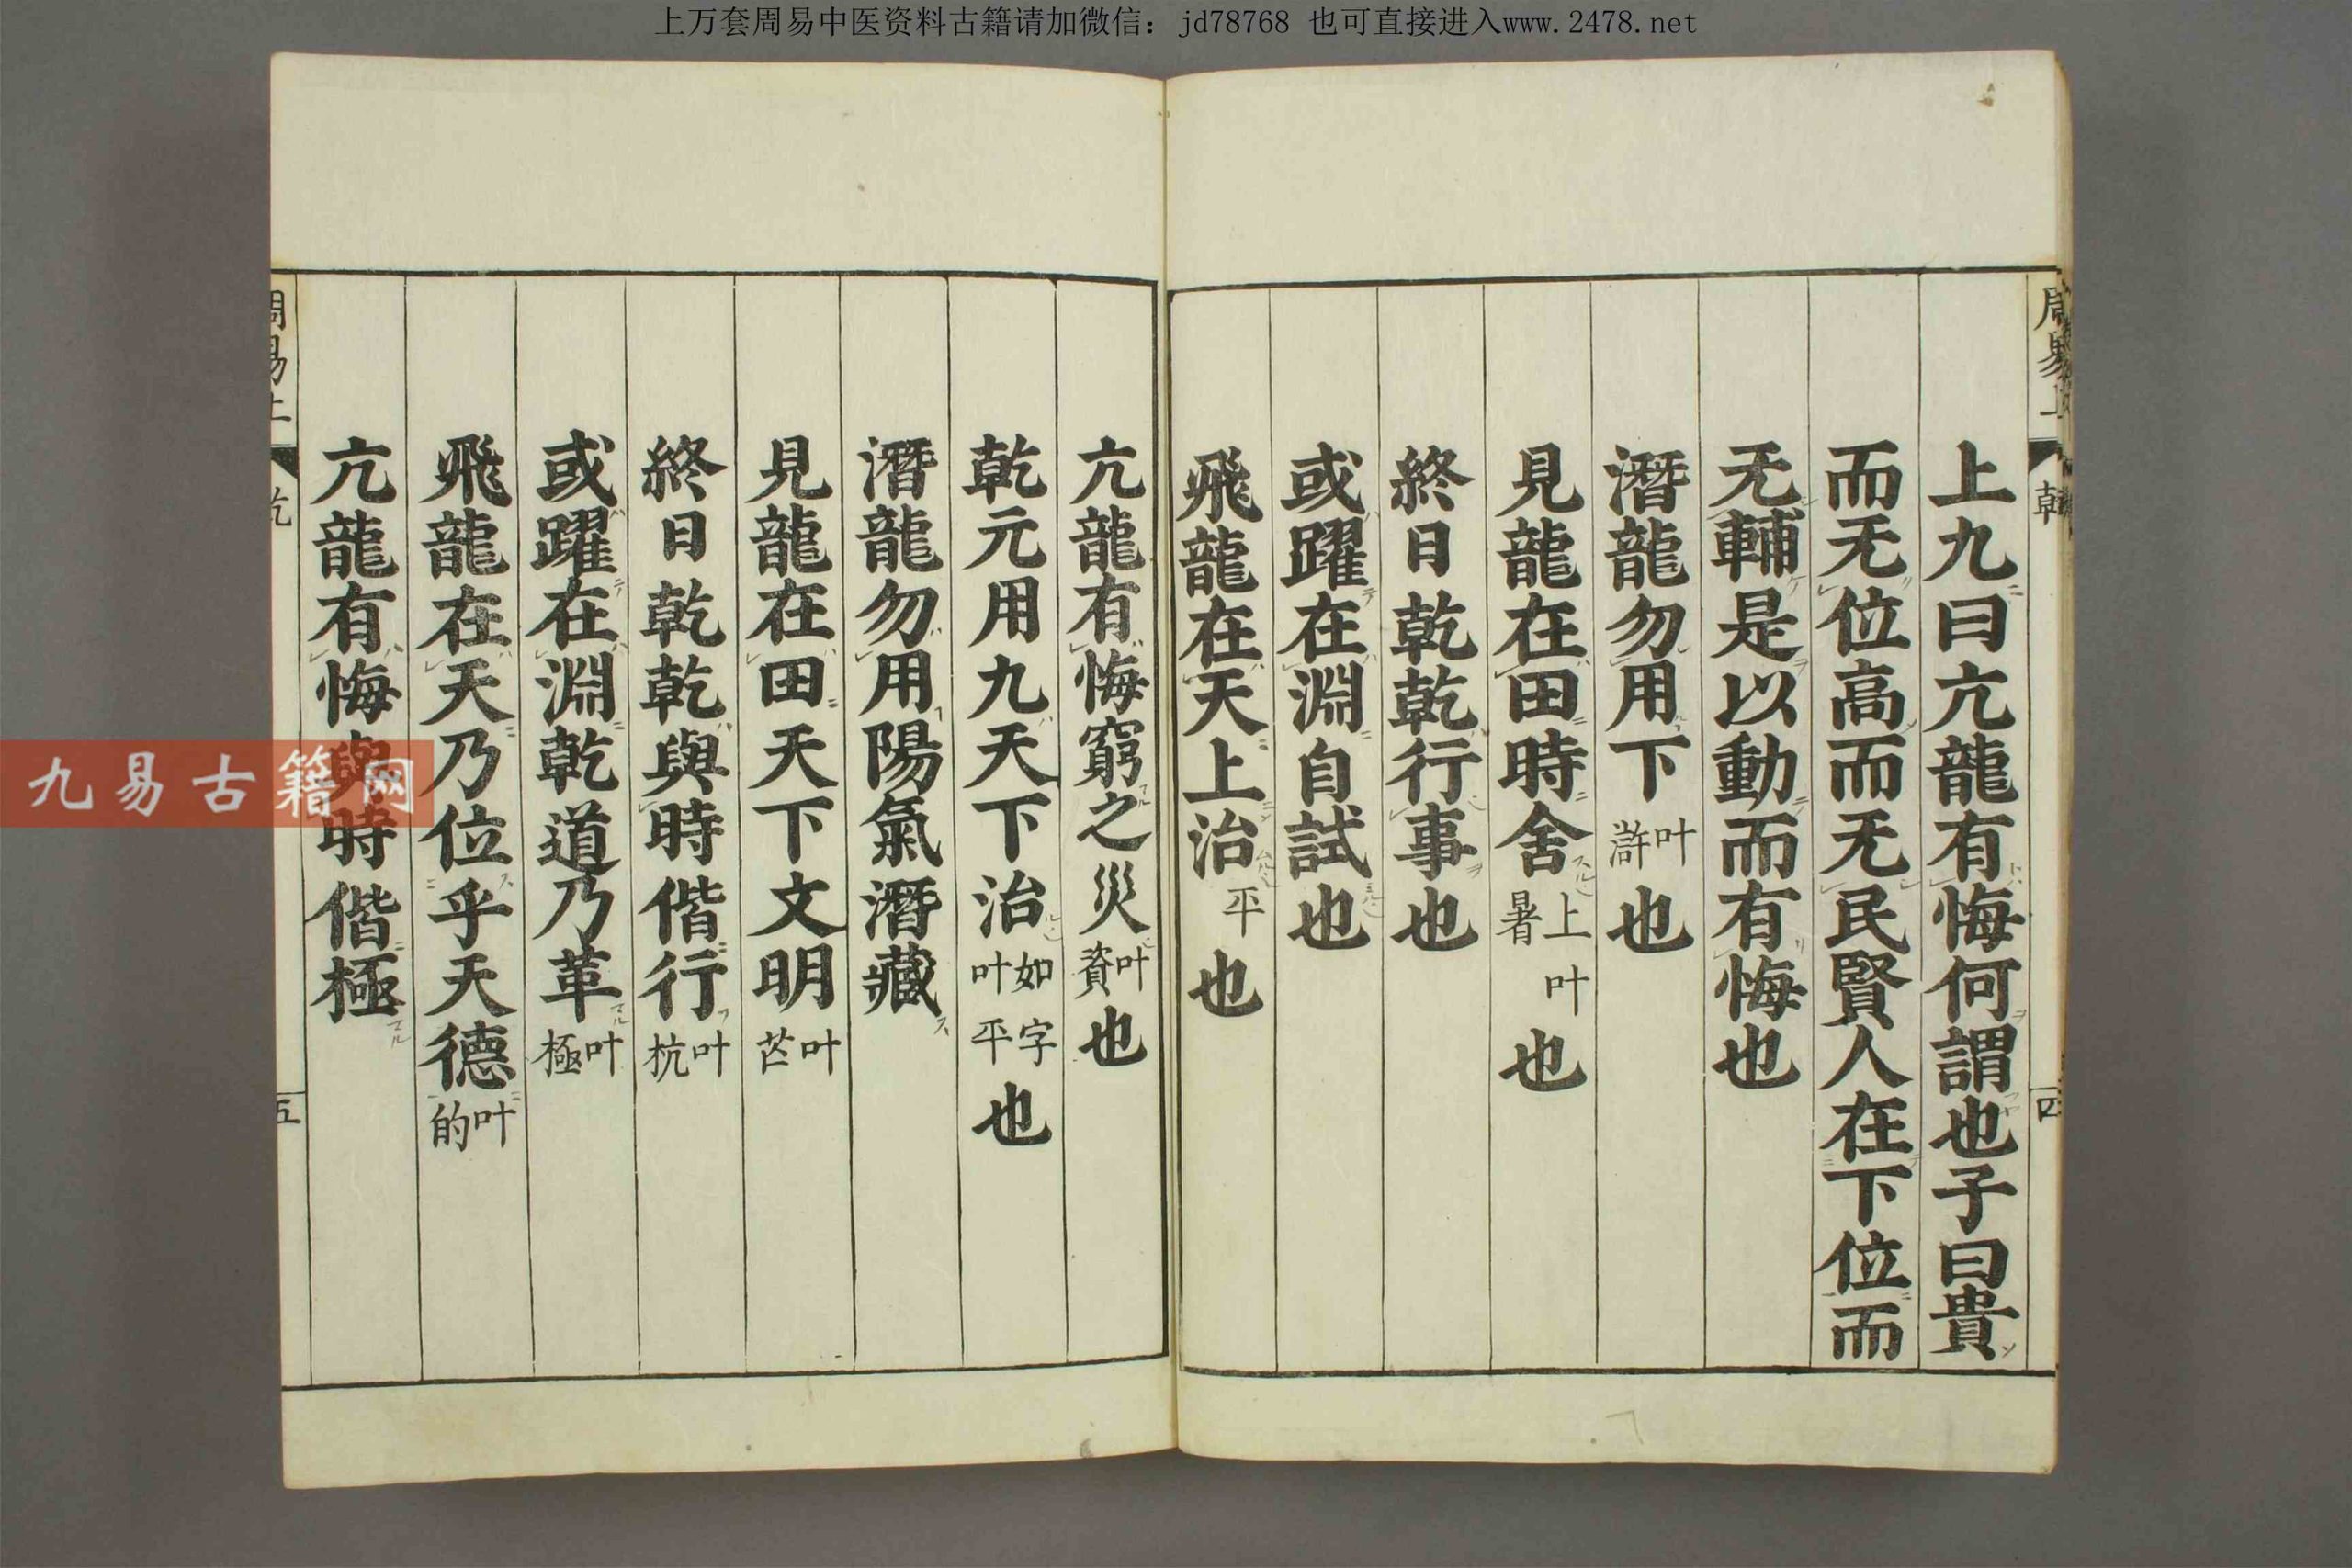 上万套周易中医资料古籍请加微信：jd78768 也可直接进入www.2478.net
周易上 乾 四
上九曰亢龍有悔何謂也子曰貴
而无位高而无民賢人在下位而
无輔是以動而有悔也
潛龍勿用下叶滸也
見龍在田時舍上叶暑也
終日乾乾行事也
或躍在淵自試也
飛龍在天上治平也
亢龍有悔窮之災叶資也
乾元用九天下治如字叶平也
潛龍勿用陽氣潛藏
見龍在田天下文明叶芒
終日乾乾與時偕行叶杭
或躍在淵乾道乃革叶極
飛龍在天乃位乎天德叶的
亢龍有悔與時偕極
周易上 乾 五
九易古籍网